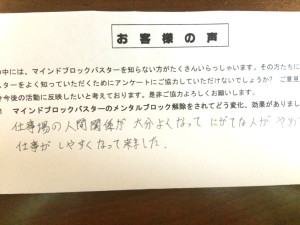 お客様の声
の中には、マインドブロックバスターを知らない方がたくさんいらっしゃいます。その方たちに
スターをよく知っていただくためにアンケートにご協力していただけないでしょうか？ご意見
今後の活動に反映したいと考えております。是非ご協力よろしくお願いします。
マインドブロックバスターのメンタルブロック解除をされてどう変化、効果がありまし
仕事場の人間関係が 大分よくなって にがてな人が やめ
仕事が しやすくなって来ました.